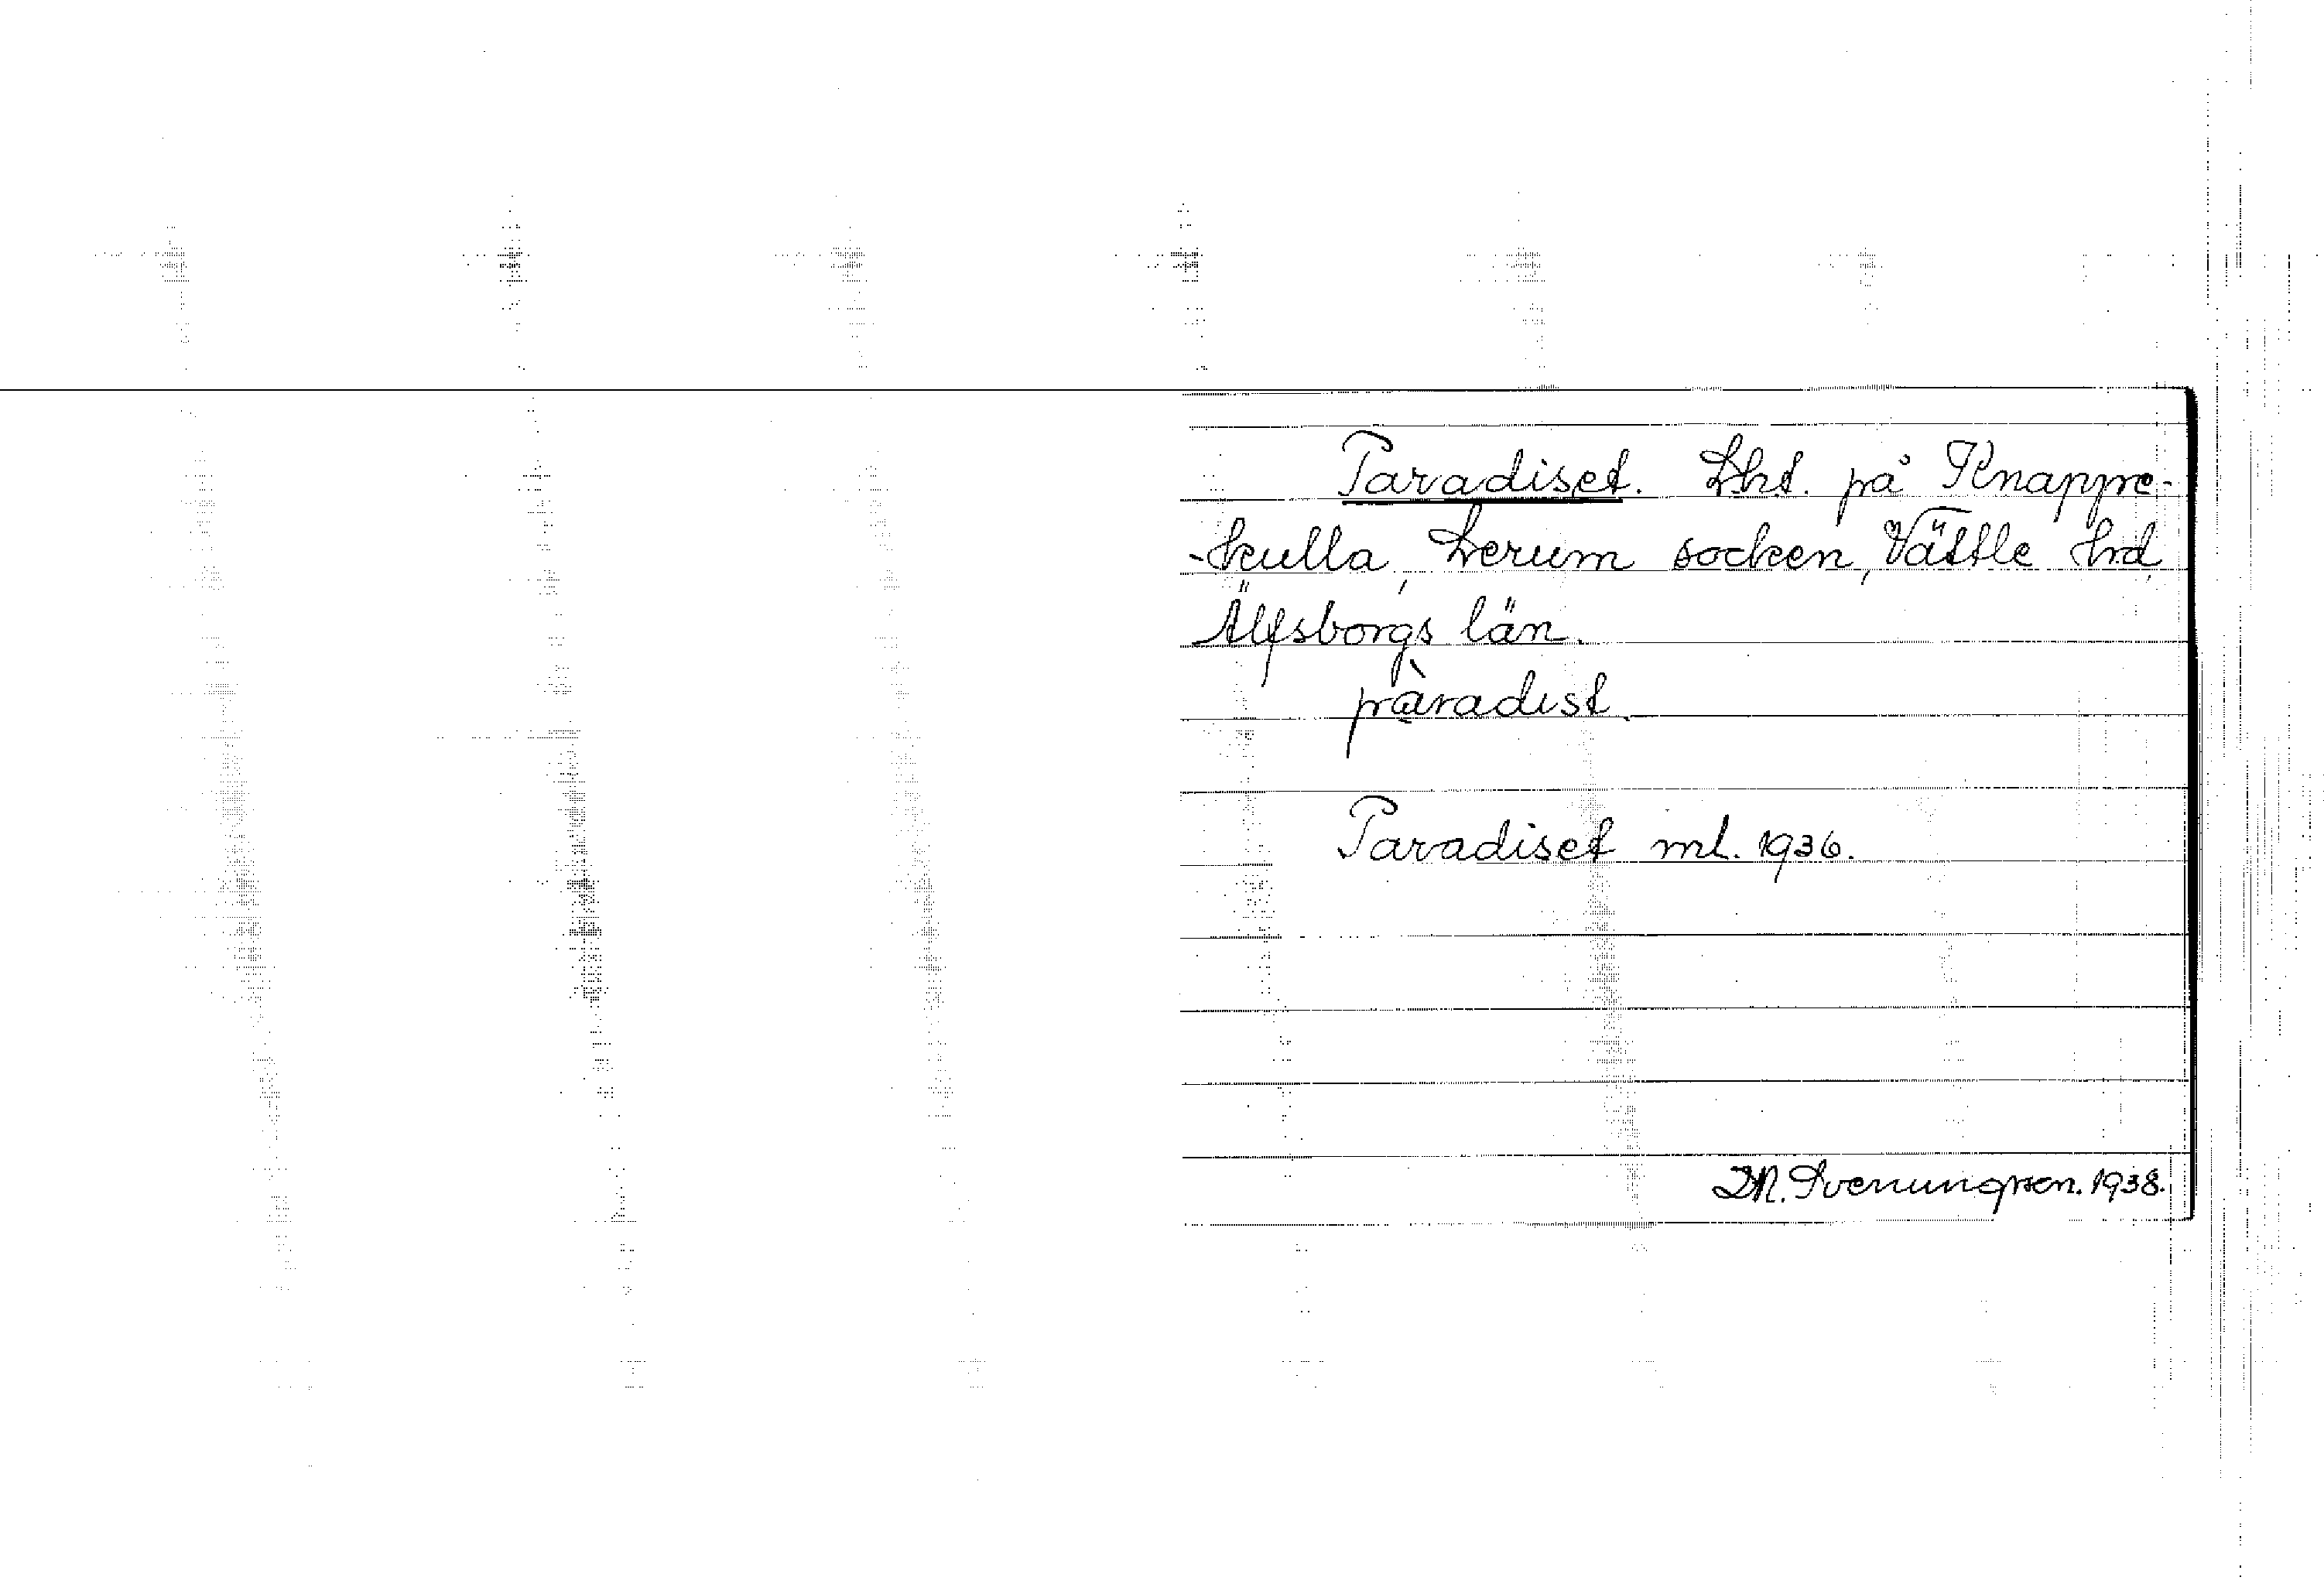 Paradiset. Lht. på Knappe-
-kulla, Lerum socken, Vättle hrd,
Älfsborgs län.
pàradist
Paradiset ml. 1936.
M. Svenungsson. 1938.